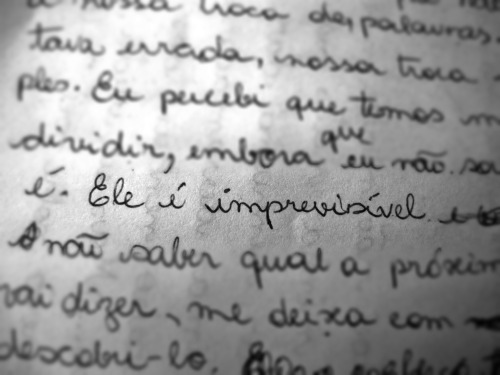 a nossa troca de, palavras.
tava errada, nossa troca
ples. Eu percebi que temos
dividir, embora que eu não sa
é. Ele é imprevisível
não saber qual a próxim
vai dizer, me deixa com
descobri-lo.